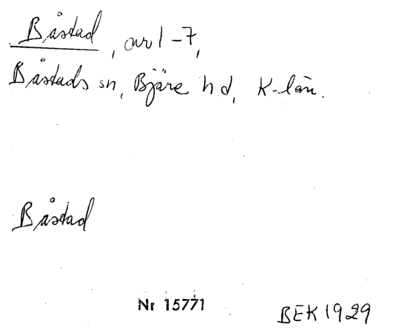 Båstad, avl-7,
Båstads sn, Bjäre hd, K-län.
Båstad
Nr 15771
BEK 1929